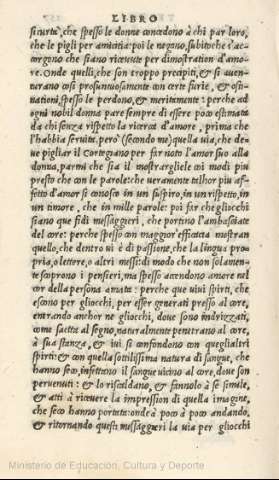 LIBRO
sicurtà, che spesso le donne concedono à chi par loro,
che le pigli per amicitia: poi le negano, subito che s'ac-
corgono che siano ricevute per dimostration d'amo-
re. Onde quelli, che son troppo precipiti, & si aven-
turano così prosuntuosamente con certe furie, & osti-
nationi, spesso le perdono, & meritamente: perche ad
ogni nobil donna pare sempre di essere poco estimata
da chi senza rispetto la ricerca d'amore, prima che
l'habbia servita. però (secondo me) quella via, che de-
ve pigliar il Cortegiano per far noto l'amor suo alla
donna, parmi che sia il mostrargliele coi modi piu
presto che con le parole: che veramente talhor piu af-
fetto d'amor si conosce in un suspiro, in un rispetto, in
un timore, che in mille parole: poi far che gliocchi
siano que fidi messaggieri, che portino l'ambasciate
del core: perche spesso con maggior efficacia mostran
quello, che dentro vi è di passione, che la lingua pro-
pria, o lettere, o altri messi: di modo che non solamen-
te scoprono i pensieri, ma spesso accendono amore nel
cor della persona amata: perche que vivi spirti, che
escono per gliocchi, per esser generati presso al core,
entrando anchor ne gliocchi, dove sono indrizzati,
come saetta al segno, naturalmente penetrano al core,
à sua stanza, & ivi si confondono con quegli altri
spirti: & con quella sottilissima natura di sangue, che
hanno seco, infettano il sangue vicino al core, dove son
pervenuti: & lo riscaldano, & fannolo à se simile,
& atti à ricevere la impression di quella imagine,
che seco hanno portata: onde à poco à poco andando,
& ritornando questi messaggieri la via per gliocchi
Ministerio de Educación, Cultura y Deporte